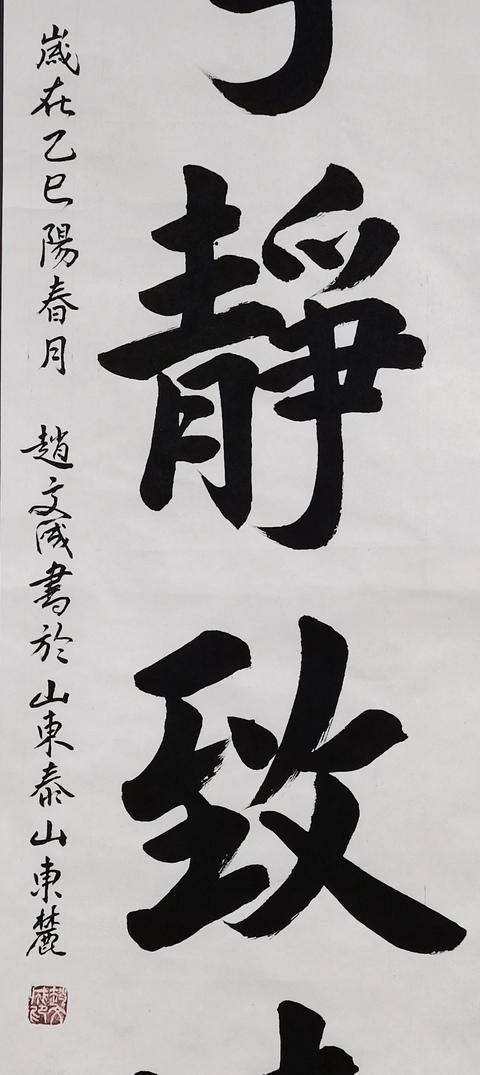 靜致
歲在乙巳陽春月 趙文成書於山東泰山東麓